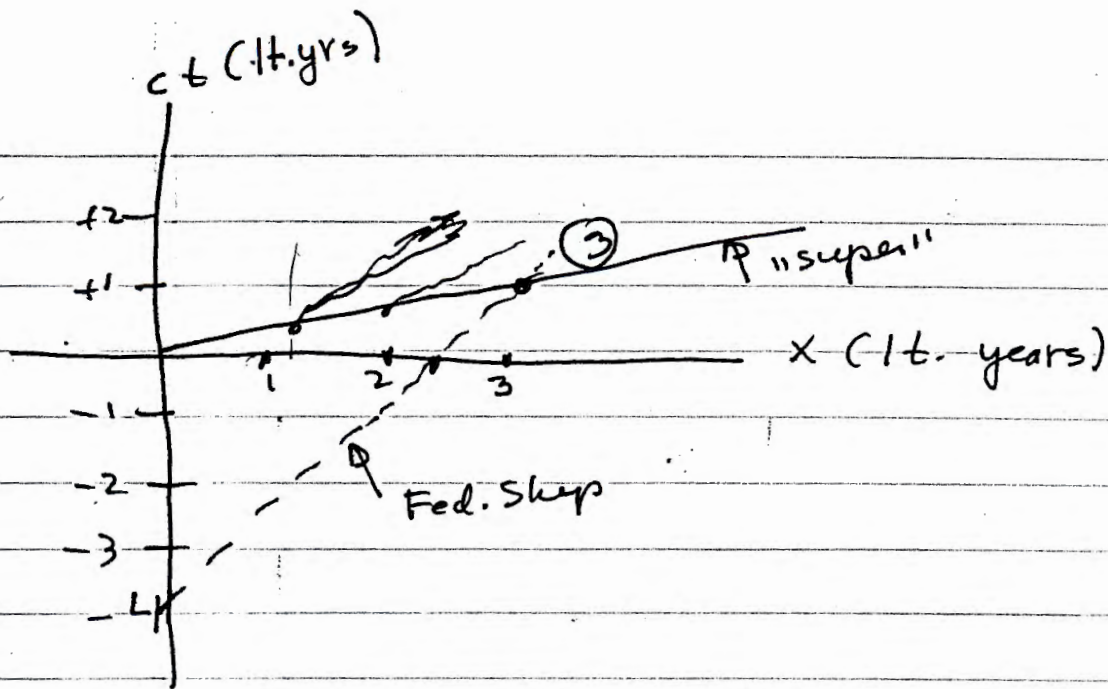 ct (lt.yrs)
+2
+1
③
"super"
1
2
3
X (lt. years)
-1
-2
-3
-4
Fed. Ship